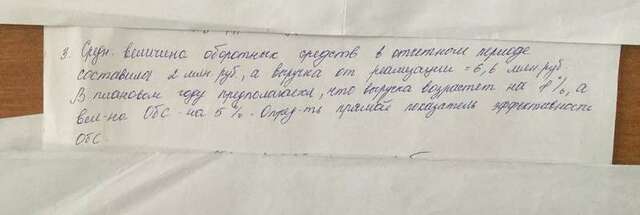 3. Средн. величина оборотных средств в отчетном периоде
составила 2 млн руб, а выручка от реализации = 6,6 млн руб.
В плановом году предполагается, что выручка возрастет на 8%, а
вел-на ОбС на 5%. Опред-ть прямой показатель эффективности
ОбС.